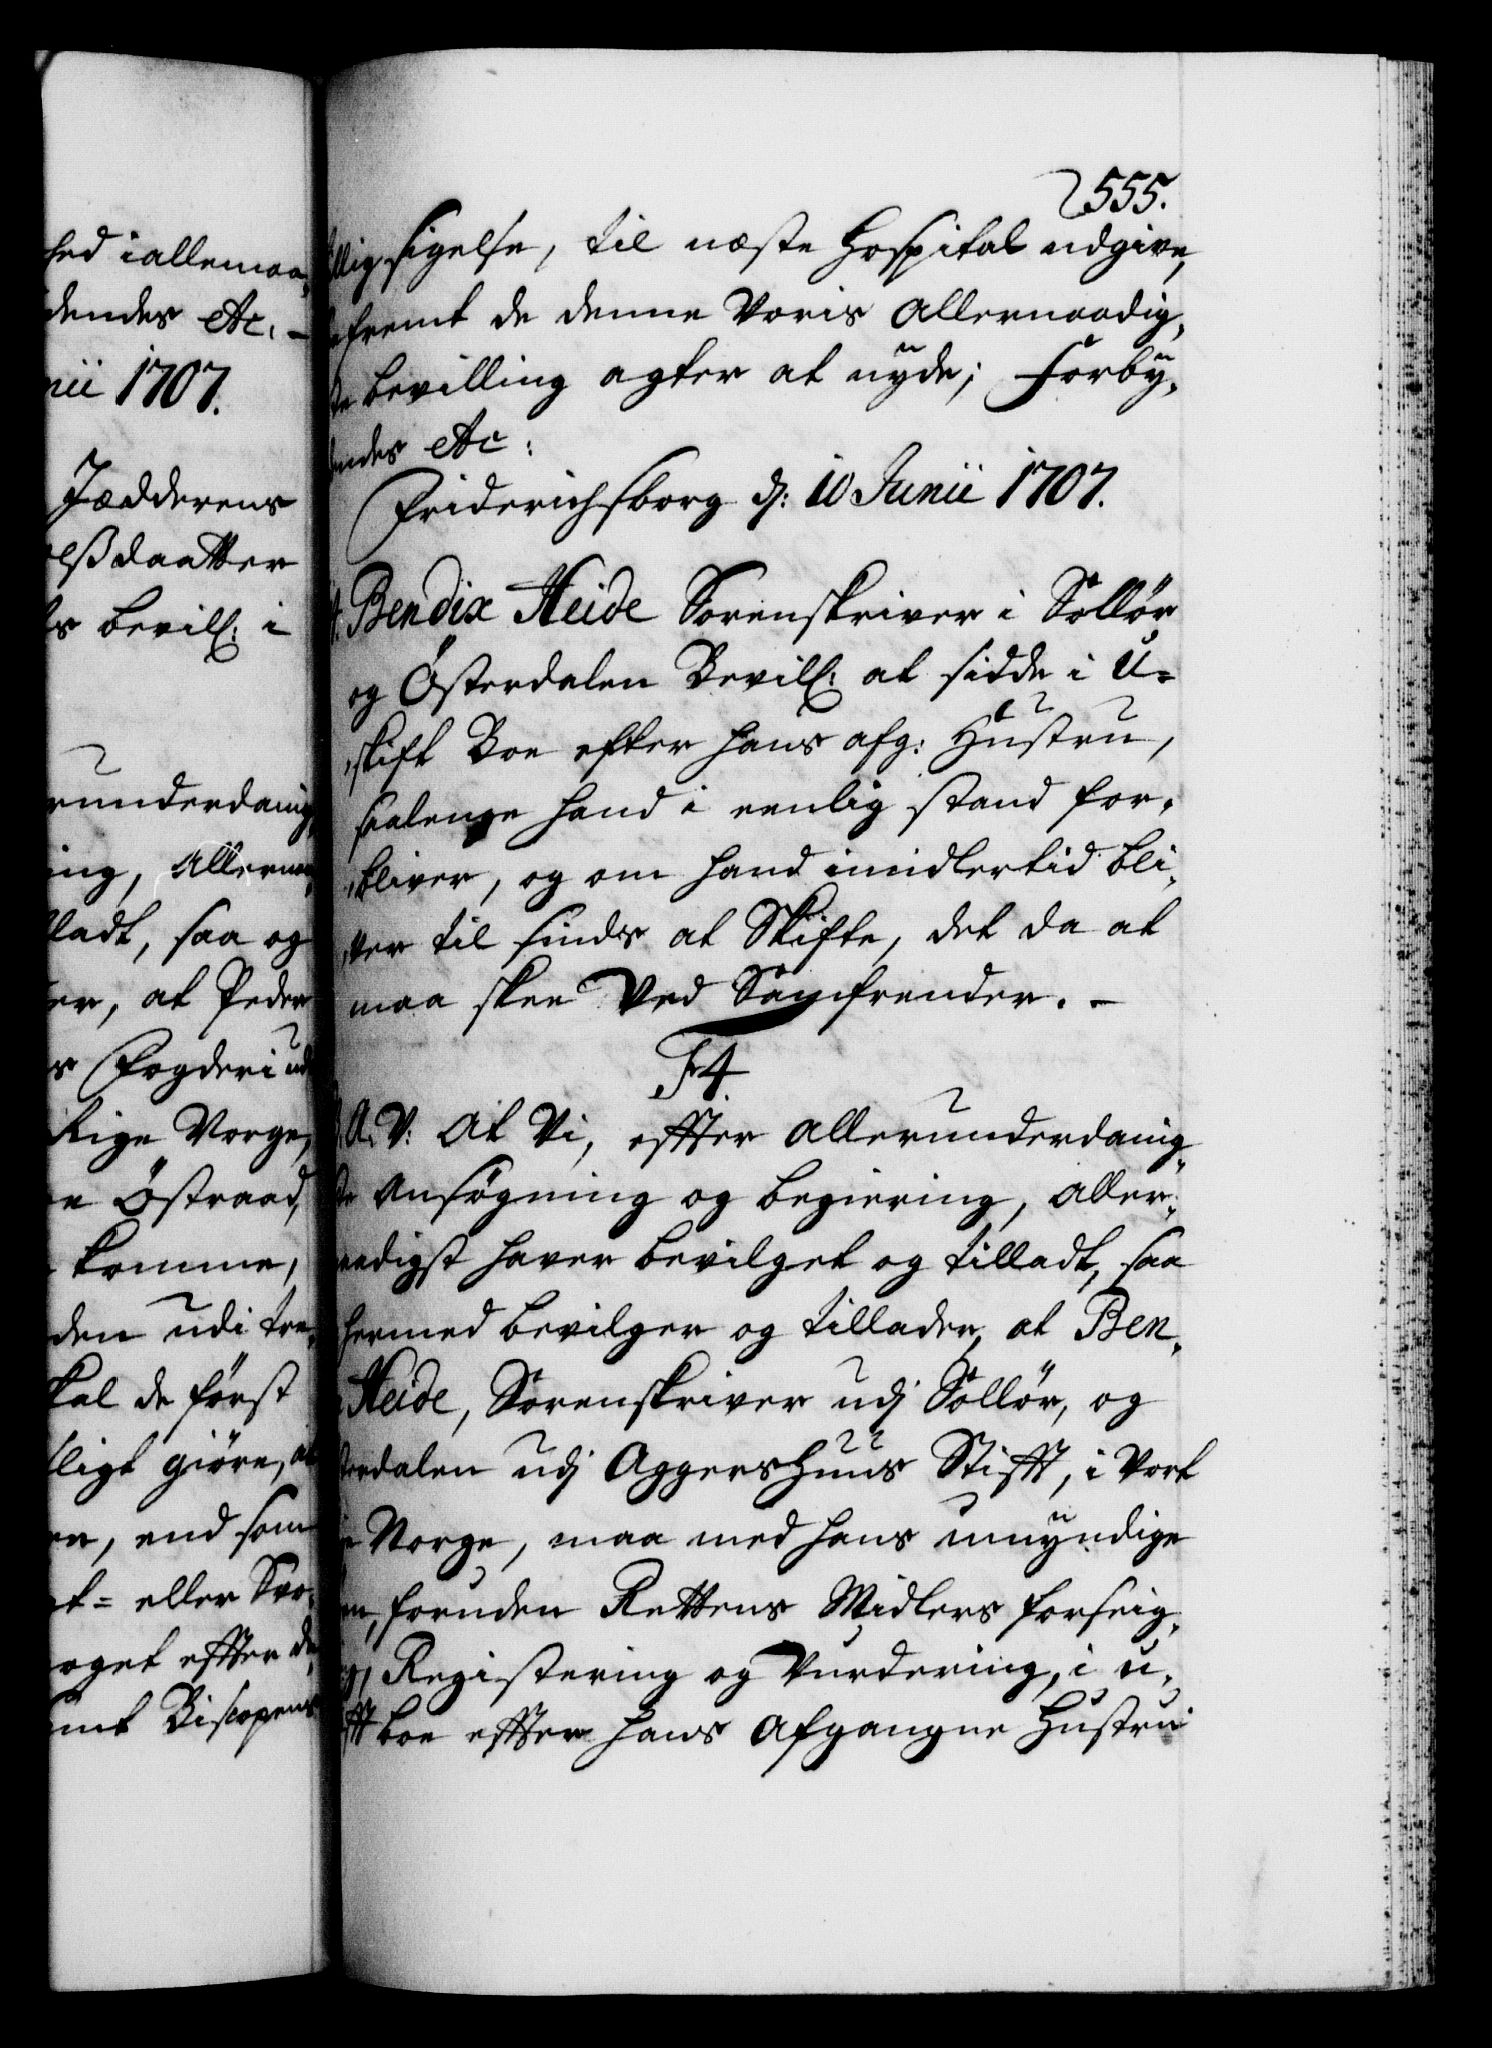 hed i allemaa,
dendes etc. –
nii 1707.
Jædderens
elßdaatter
s bevill: i
runderdanig,
ing, Aller
ladt, saa og
er, at Peder
s Fogderi ud
Rige Norge,
e Östraad,
komme,
den udi tre,
kal de först
ligt giöre, at
en, end som
t= eller Svo,
oget effter de,
mt Biscopens
555.
llig sigelse, til næste Hospital udgive,
fremt de denne Voris Allernaadig,
te bevilling agter at nyde; Forby,
endes etc:
Friderichsborg d: 10 Junii 1707.
Bendix Heide Sorenskriver i Sollör
og Österdalen Bevill: at sidde i U=
skift Boe efter hans afg: Hustru,
saalenge hand i eenlig stand for,
bliver, og om hand imidlertid bli,
ver til sinds at Skifte, det da at
maa skee Ved Samfrender. –
F4.
A: V: At Vi, effter allerunderdanig,
te Ansögning og begiering, Aller,
aadigst haver bevilget og tilladt, saa
hermed bevilger og tillader, at Ben,
Heide, Sorenskriver udj Sollör, og
terdalen udj Aggershuus Stifft, i Vort
e Norge, maa med hans umyndige
n, foruden Rettens Midlers forseig,
g, Registering og Vurdering, i u,
fft boe effter hans Afgangne Hustru